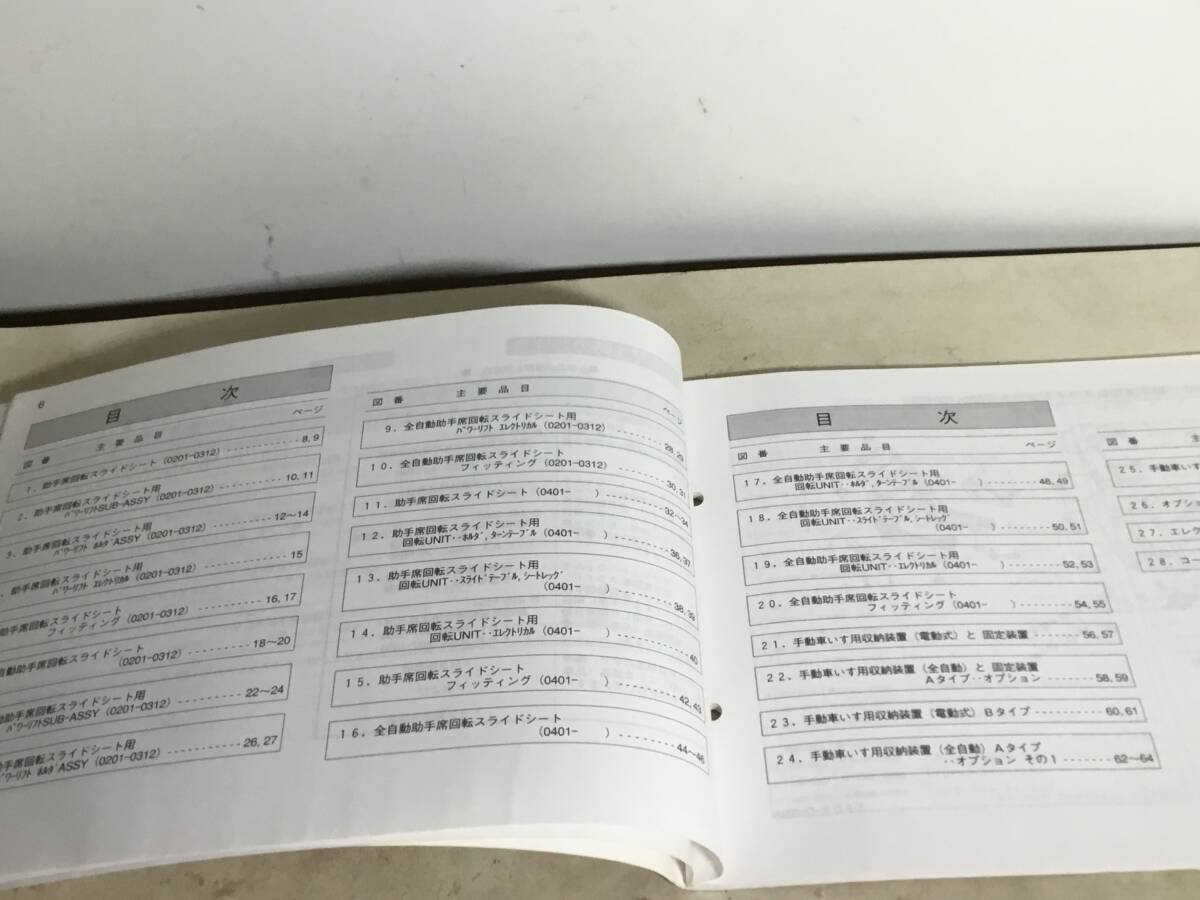 6
目 次
図番 主要品目 ページ
1. 助手席回転スライドシート (0201-0312) 8,9
2. 助手席回転スライドシート用
ﾊﾟﾜｰﾘﾌﾄSUB-ASSY (0201-0312) 10,11
3. 助手席回転スライドシート用
ﾊﾟﾜｰﾘﾌﾄ ﾎﾙﾀﾞASSY (0201-0312) 12〜14
助手席回転スライドシート用
ﾊﾟﾜｰﾘﾌﾄ ｴﾚｸﾄﾘｶﾙ (0201-0312) 15
助手席回転スライドシート
フィッティング (0201-0312) 16,17
自動助手席回転スライドシート
(0201-0312) 18〜20
助手席回転スライドシート用
ﾊﾟﾜｰﾘﾌﾄSUB-ASSY (0201-0312) 22〜24
手席回転スライドシート用
ﾜｰﾘﾌﾄ ﾎﾙﾀﾞASSY (0201-0312) 26,27
図番 主要品目 ページ
9. 全自動助手席回転スライドシート用
ﾊﾟﾜｰﾘﾌﾄ ｴﾚｸﾄﾘｶﾙ (0201-0312) 28,29
10. 全自動助手席回転スライドシート
フィッティング (0201-0312) 30,31
11. 助手席回転スライドシート (0401- ) 32〜34
12. 助手席回転スライドシート用
回転UNIT‥ﾎﾙﾀﾞ,ﾀｰﾝﾃｰﾌﾞﾙ (0401- ) 36,37
13. 助手席回転スライドシート用
回転UNIT‥ｽﾗｲﾄﾞﾃｰﾌﾞﾙ,ｼｰﾄﾚｯｸﾞ
(0401- ) 38,39
14. 助手席回転スライドシート用
回転UNIT‥ｴﾚｸﾄﾘｶﾙ (0401- ) 40
15. 助手席回転スライドシート
フィッティング (0401- ) 42,43
16. 全自動助手席回転スライドシート
(0401- ) 44〜46
目 次
図番 主要品目 ページ
17. 全自動助手席回転スライドシート用
回転UNIT‥ﾎﾙﾀﾞ,ﾀｰﾝﾃｰﾌﾞﾙ (0401- ) 48,49
18. 全自動助手席回転スライドシート用
回転UNIT‥ｽﾗｲﾄﾞﾃｰﾌﾞﾙ,ｼｰﾄﾚｯｸﾞ
(0401- ) 50,51
19. 全自動助手席回転スライドシート用
回転UNIT‥ｴﾚｸﾄﾘｶﾙ (0401- ) 52,53
20. 全自動助手席回転スライドシート
フィッティング (0401- ) 54,55
21. 手動車いす用収納装置 (電動式) と 固定装置 56,57
22. 手動車いす用収納装置 (全自動) と 固定装置
Aタイプ‥オプション 58,59
23. 手動車いす用収納装置 (電動式) Bタイプ 60,61
24. 手動車いす用収納装置 (全自動) Aタイプ
‥オプション その1 62〜64
図番 主
25. 手動車いす
26. オプシ
27. エレ
28. コー